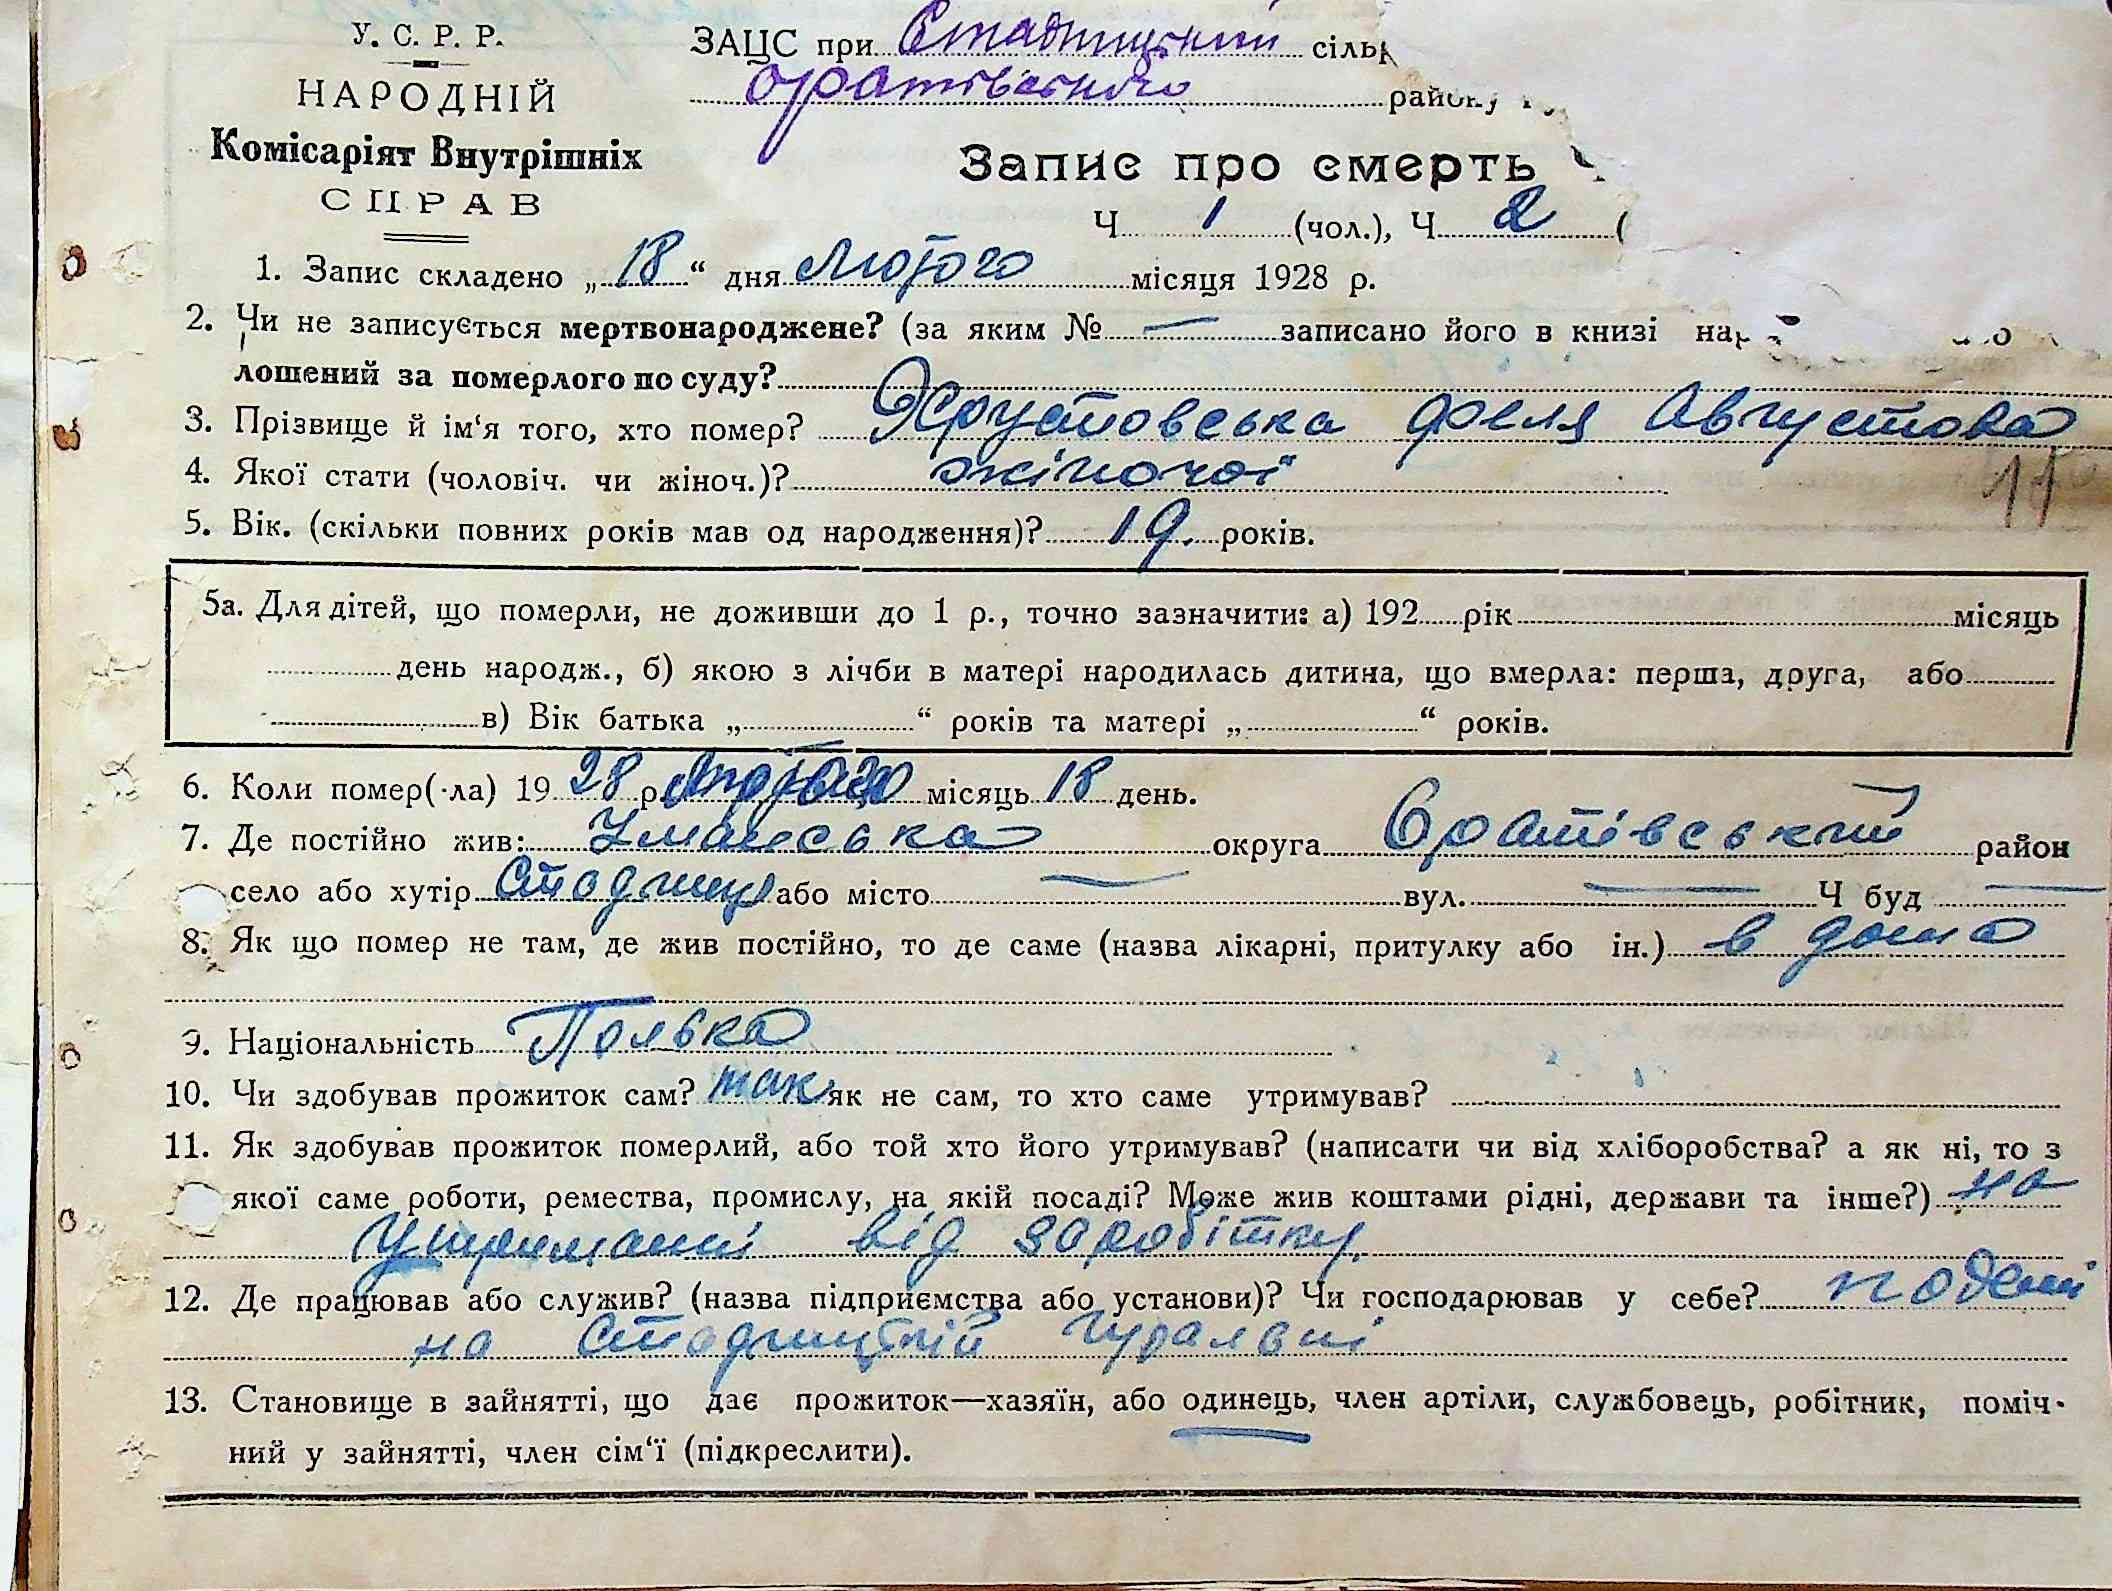 У. С. Р. Р.
НАРОДНІЙ
Комісаріят Внутрішніх
СПРАВ
ЗАЦС при Стадницький сільр
Оратівського району
Запис про смерть Ч
Ч 1 (чол.), Ч 2 (
1. Запис складено „18“ дня Лютого місяця 1928 р.
2. Чи не записується мертвонароджене? (за яким № — записано його в книзі нар
лошений за померлого по суду?
3. Прізвище й ім‘я того, хто помер? Хрустовська Августова
4. Якої стати (чоловіч. чи жіноч.)? жіночої
5. Вік. (скільки повних років мав од народження)? 19. років.
5а. Для дітей, що померли, не доживши до 1 р., точно зазначити: а) 192 рік місяць
день народж., б) якою з лічби в матері народилась дитина, що вмерла: перша, друга, або
в) Вік батька „ “ років та матері „ “ років.
6. Коли помер(-ла) 19 28 р. Лютого місяць 18 день.
7. Де постійно жив: Уманська округа Оратівський район
село або хутір Стадниця або місто — вул. — Ч буд —
8. Як що помер не там, де жив постійно, то де саме (назва лікарні, притулку або ін.) в дома
9. Національність Полька
10. Чи здобував прожиток сам? так як не сам, то хто саме утримував?
11. Як здобував прожиток померлий, або той хто його утримував? (написати чи від хліборобства? а як ні, то з
якої саме роботи, ремества, промислу, на якій посаді? Може жив коштами рідні, держави та інше?) на
утриманні від заробітку.
12. Де працював або служив? (назва підприємства або установи)? Чи господарював у себе? поденно
на Стадницькій гуральні
13. Становище в зайнятті, що дає прожиток—хазяїн, або одинець, член артіли, службовець, робітник, поміч-
ний у зайнятті, член сім‘ї (підкреслити).